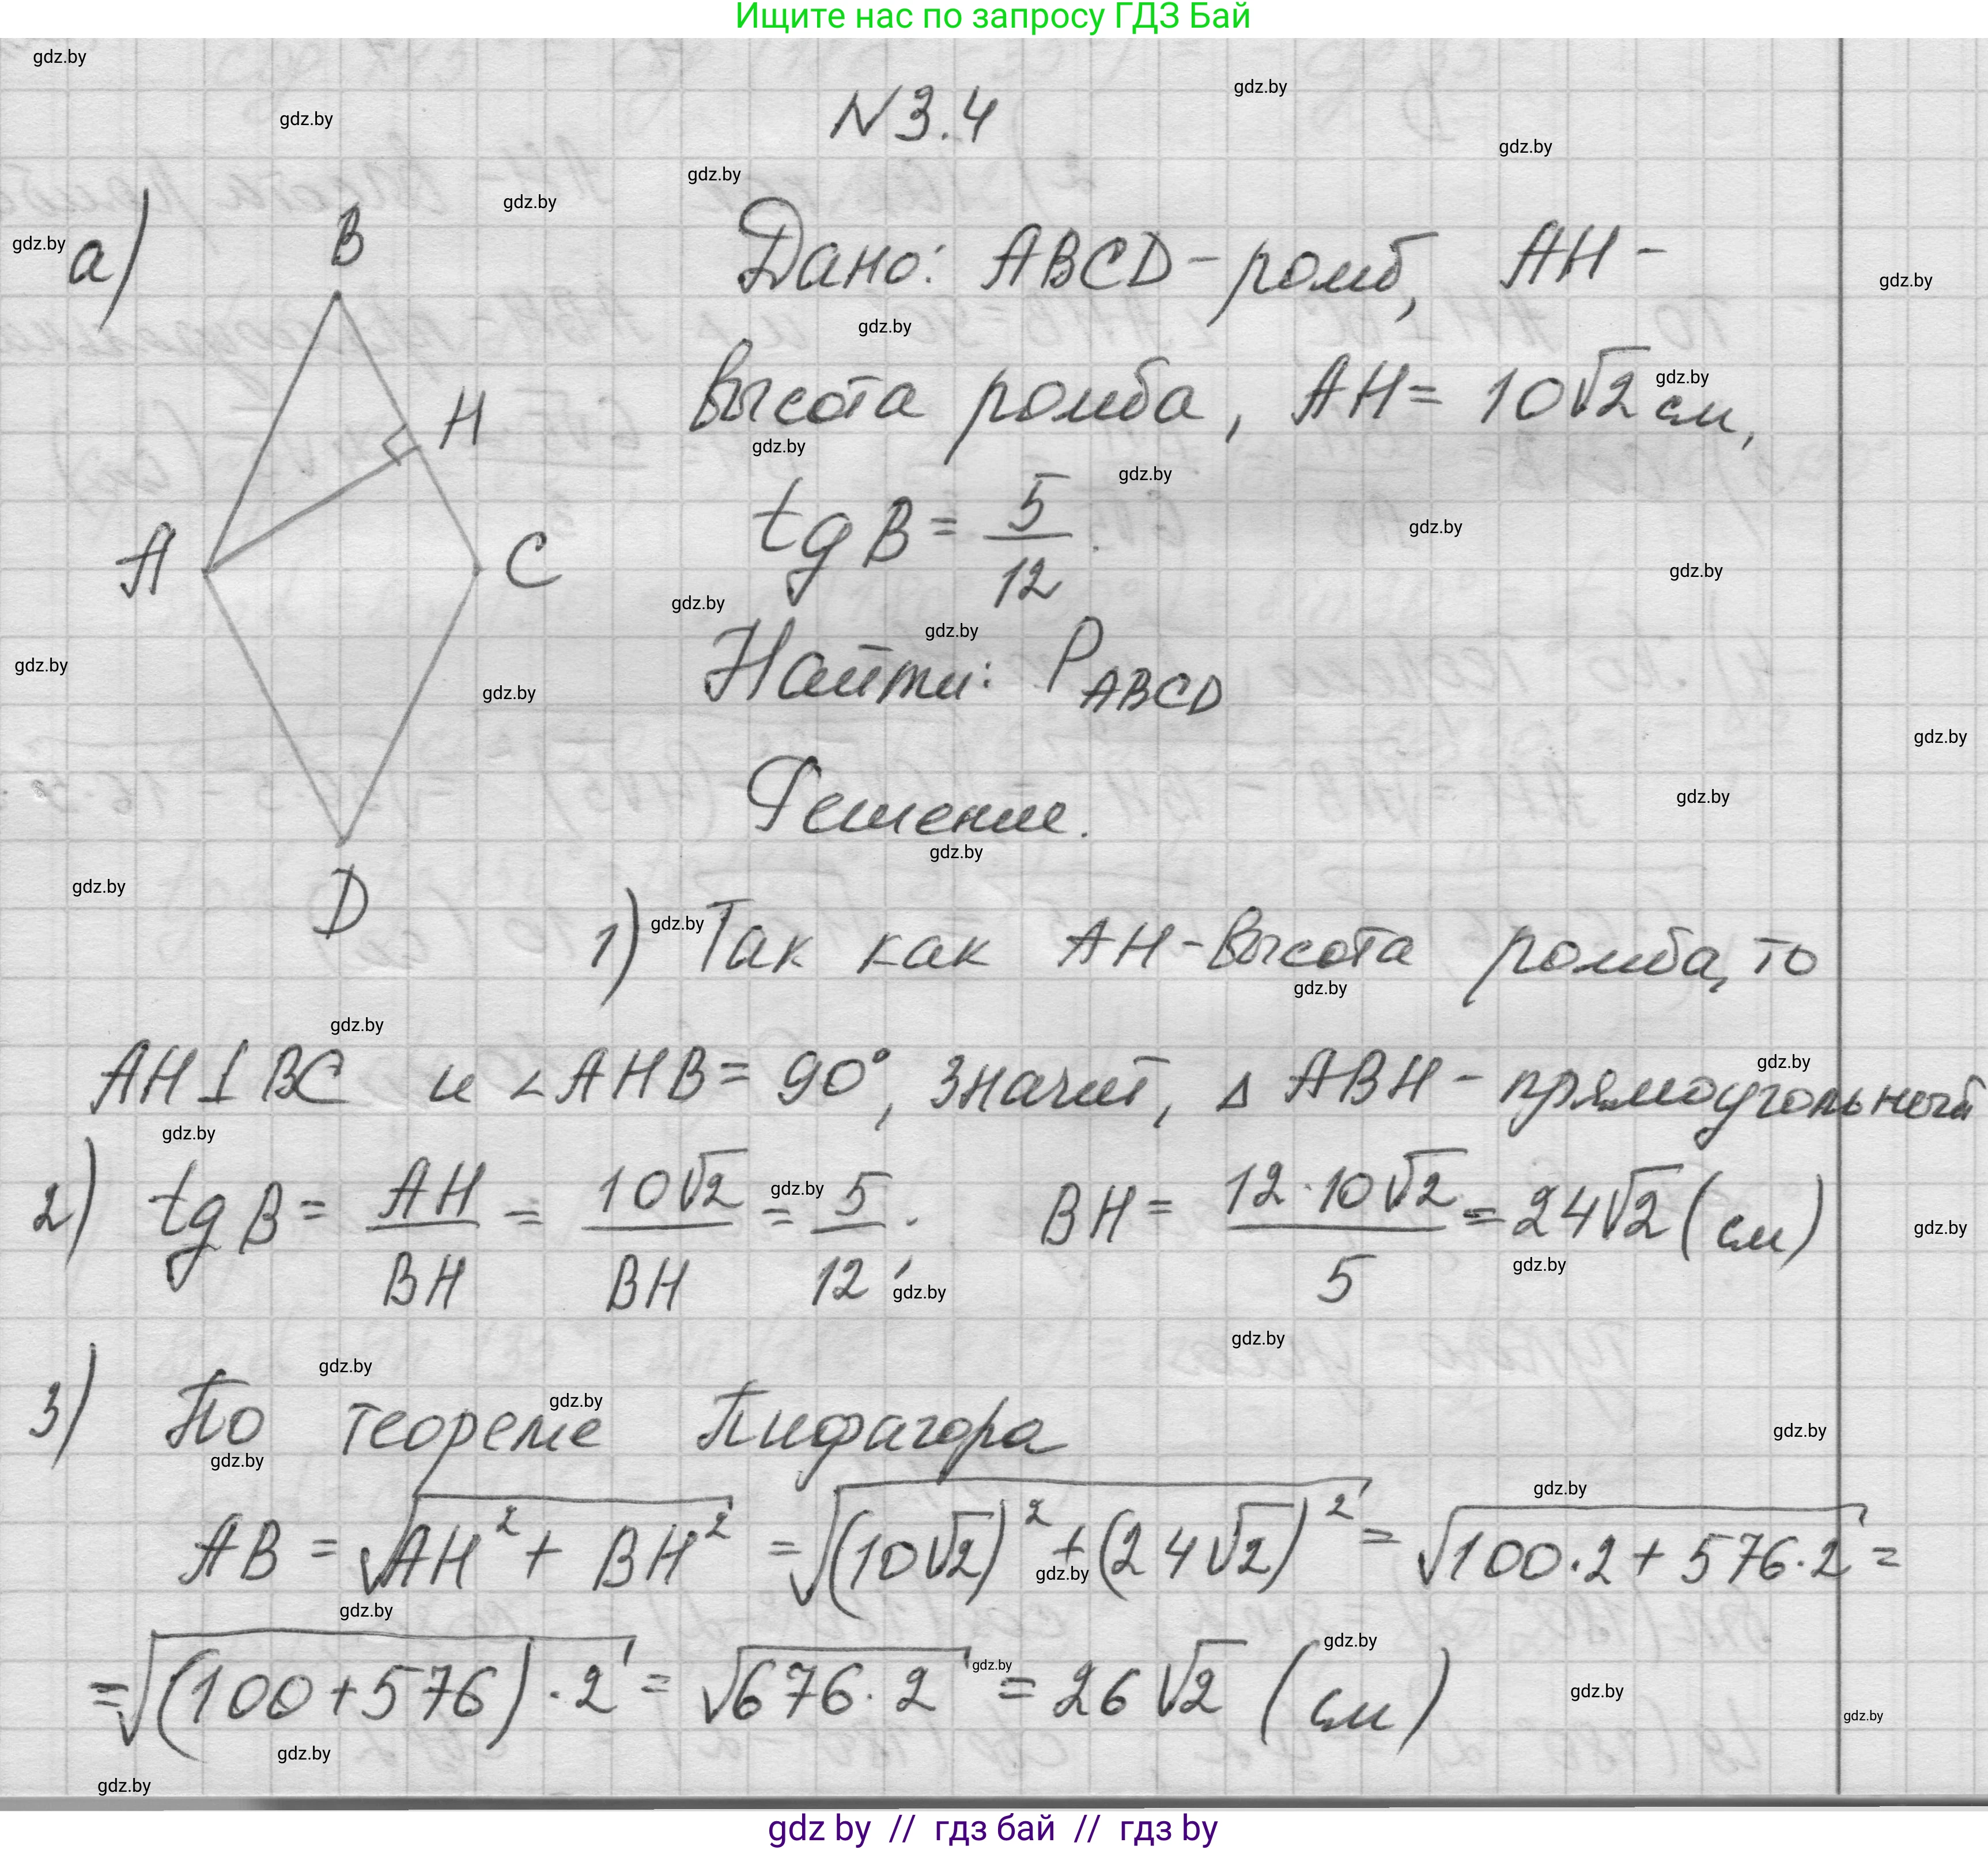 Ищите нас по запросу ГДЗ Бай
N 3.4
а)
B
H
A
C
D
Дано: ABCD - ромб, AH -
высота ромба, AH = 10√2 см,
tg B = 5/12.
Найти: P ABCD
Решение.
1) Так как AH - высота ромба, то
AH ⊥ BC и ∠AHB = 90°, значит, △ ABH - прямоугольный
2) tg B = AH/BH = 10√2/BH = 5/12; BH = 12·10√2/5 = 24√2 (см)
3) По теореме Пифагора
AB = √(AH² + BH²) = √((10√2)² + (24√2)²) = √(100·2 + 576·2) =
= √((100 + 576)·2) = √(676·2) = 26√2 (см)
gdz by // гдз бай // гдз by
gdz.by